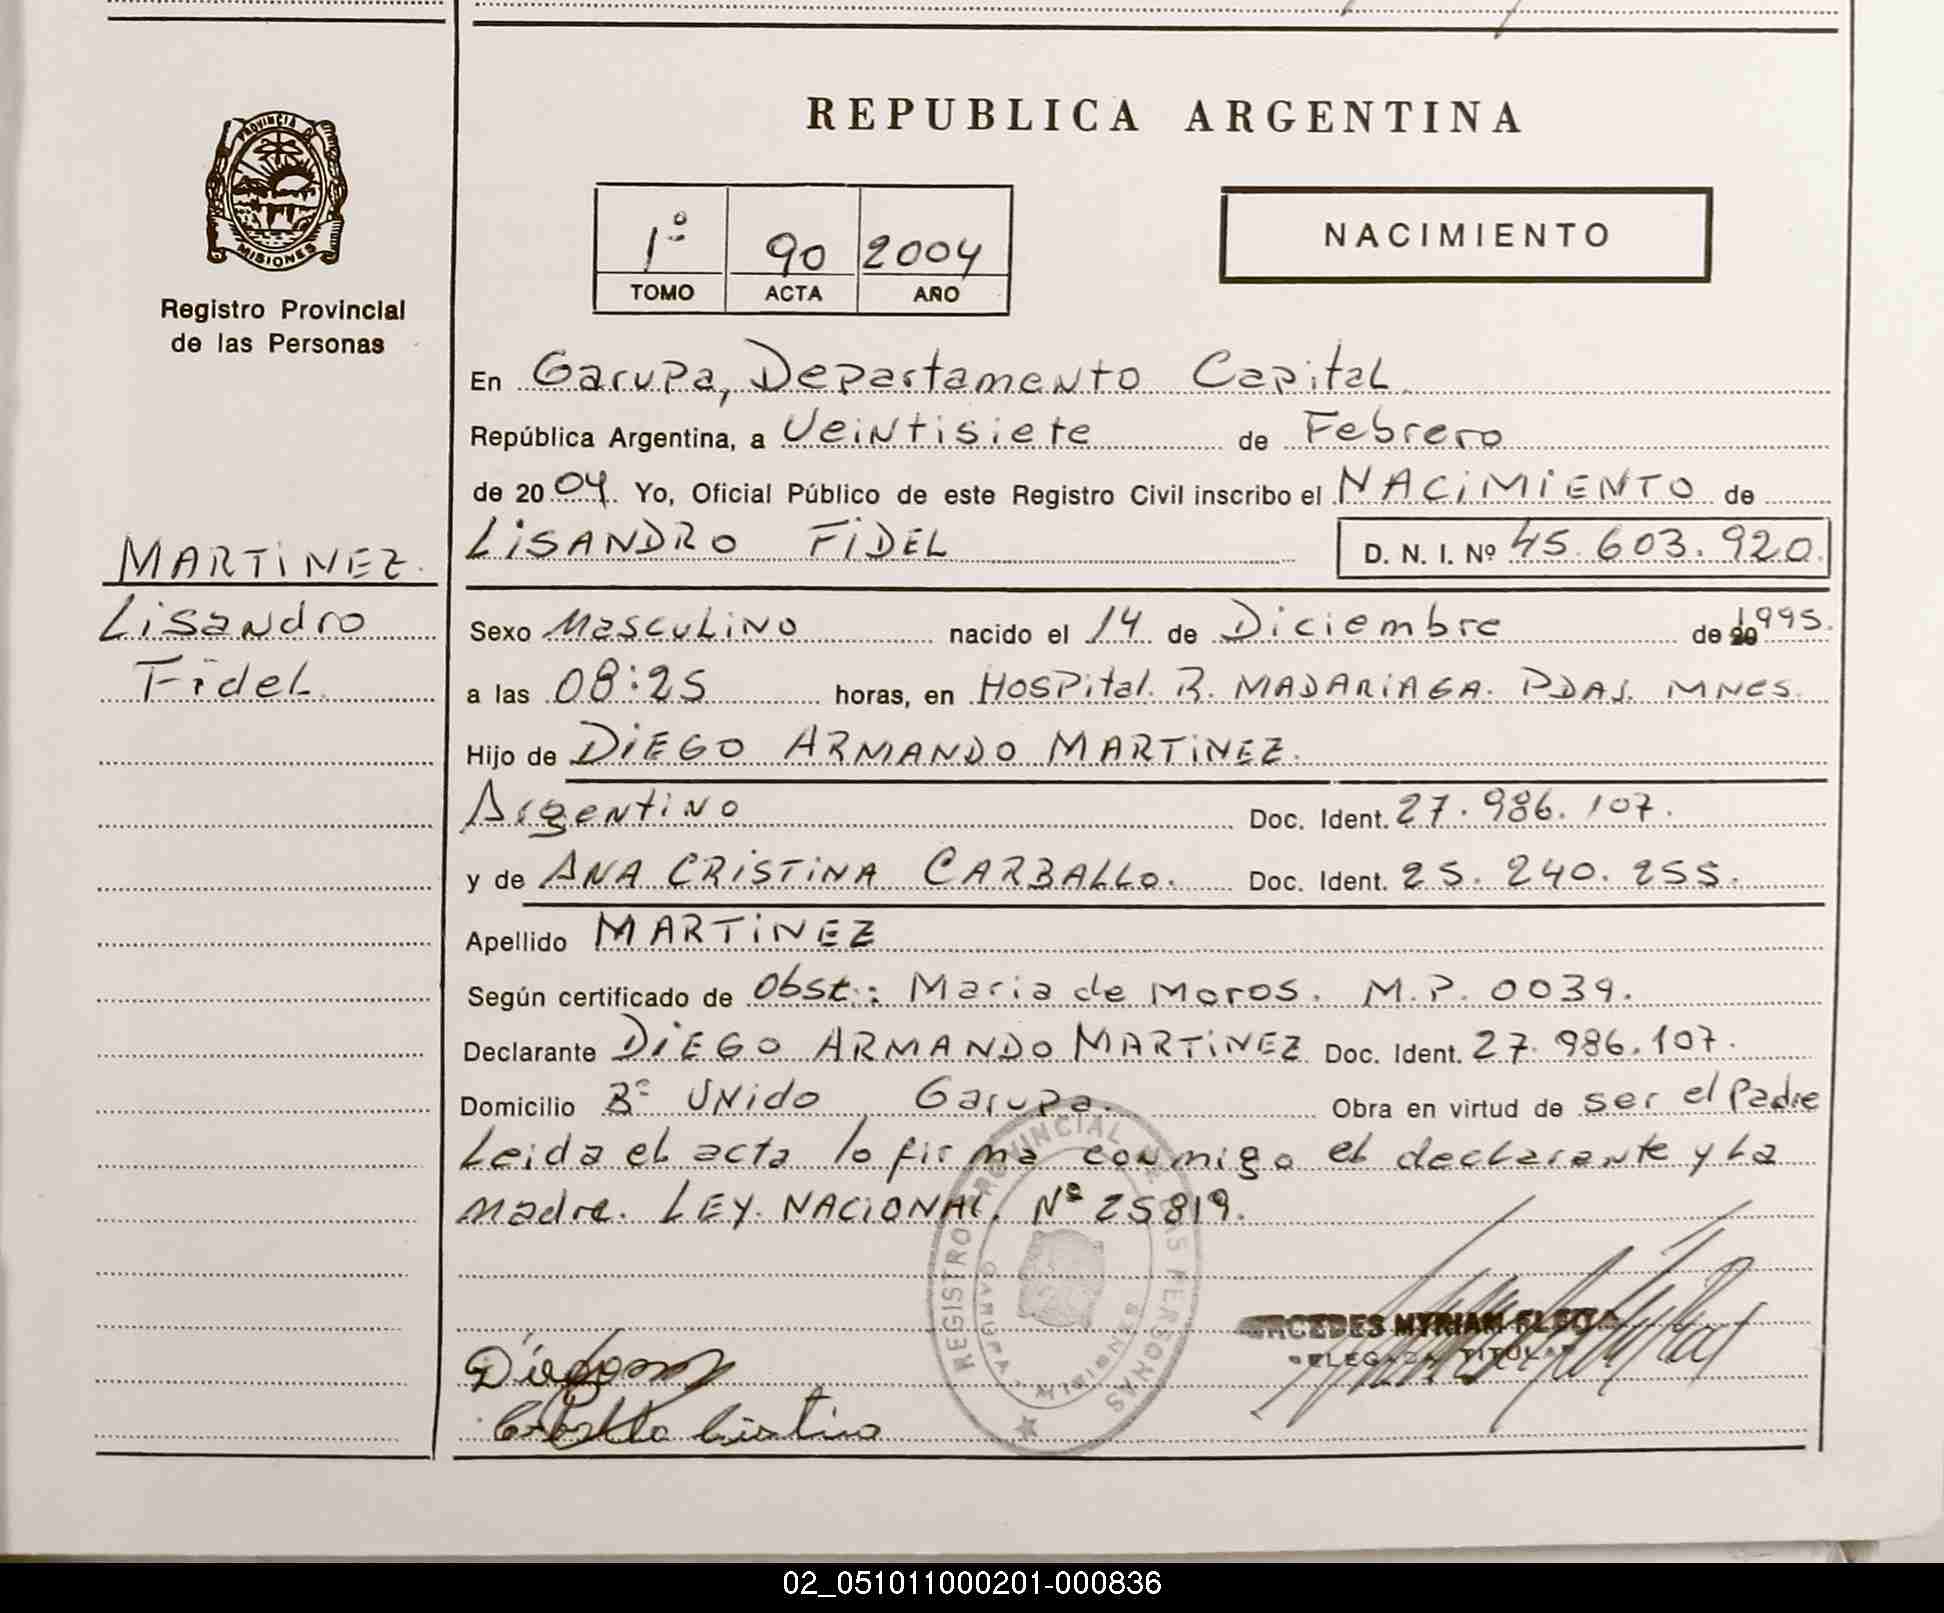 REPUBLICA ARGENTINA
PROVINCIA DE
MISIONES
Registro Provincial
de las Personas
1º 90 2004
TOMO ACTA AÑO
NACIMIENTO
En Garupa, Departamento Capital
República Argentina, a Veintisiete de Febrero
de 2004. Yo, Oficial Público de este Registro Civil inscribo el NACIMIENTO de
LISANDRO FIDEL D. N. I. Nº 45.603.920.
MARTINEZ.
Lisandro
Fidel
Sexo Masculino nacido el 14 de Diciembre de 20 1995.
a las 08:25 horas, en Hospital. R. MADARIAGA. PDAS. MNES.
Hijo de DIEGO ARMANDO MARTINEZ.
Argentino Doc. Ident. 27.986.107.
y de ANA CRISTINA CARBALLO. Doc. Ident. 25.240.255.
Apellido MARTINEZ
Según certificado de Obst.: Maria de Moros. M.P. 0039.
Declarante DIEGO ARMANDO MARTINEZ Doc. Ident. 27.986.107.
Domicilio Bº UNido Garupa. Obra en virtud de ser el Padre
Leida el acta lo firma conmigo el declarante y La
Madre. LEY. NACIONAL. Nº 25819.
REGISTRO PROVINCIAL DE LAS PERSONAS
GARUPA MISIONES
MYRIAM
DELEGADA TITULAR
Carballo Cristina
02_051011000201-000836